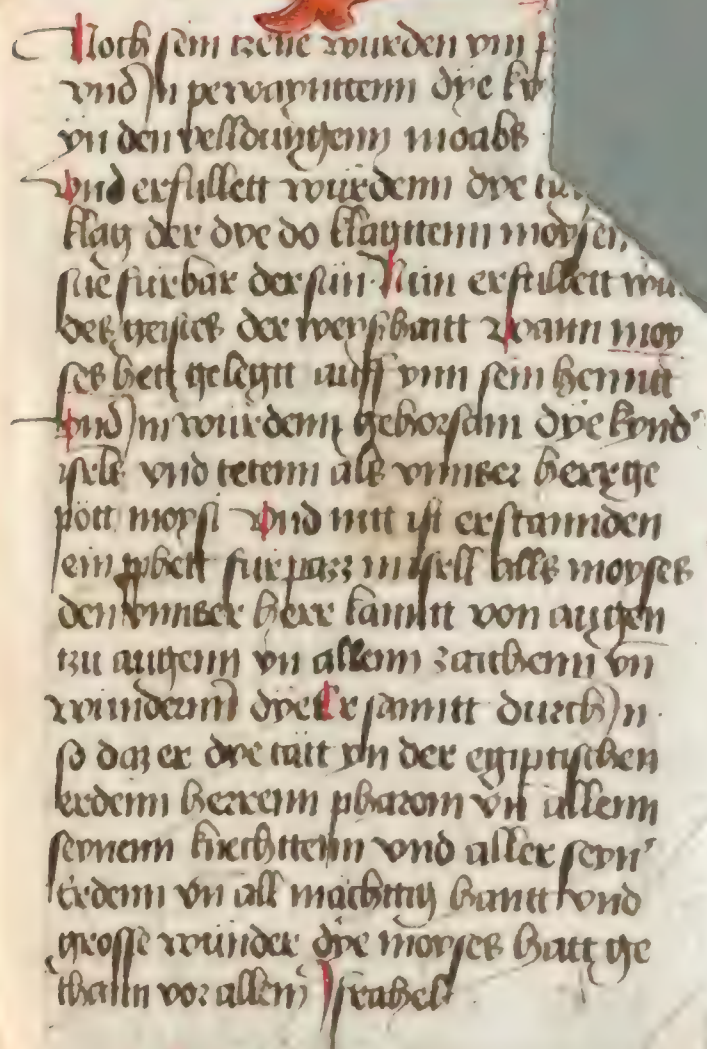 Noch sein tzene wurden vm
vnd Jn pewaynttenn dye
yn den velldungenn moabs
vnd erfullett wurdenn dye
klag der dye do klagttenn moysen
sue furbar der sun Nun erfullett
des geistes der weyßhaitt wann moy
ses hett gelegtt auff ynn sein henntt
vnd Jm wurdenn gehorsam dye kynd'
isrls vnd tetenn als vnnser herr ge
pott moysi vnd nitt ist erstannden
ein pphett furpazz in isrll alls moyses
den vnnser herr kanntt von augen
tzu augenn yn allenn zaichenn vn
wundernn dye Er sanntt durch Jn
so daz er dye tätt yn der egiptischen
erdenn herrenn pharoni vn allenn
seynenn knechttenn vnd aller seyn'
Erdenn vn all mächttig hantt vnd
grosse wunder dye moyses hatt ge
thann vor allenn Jsrahel